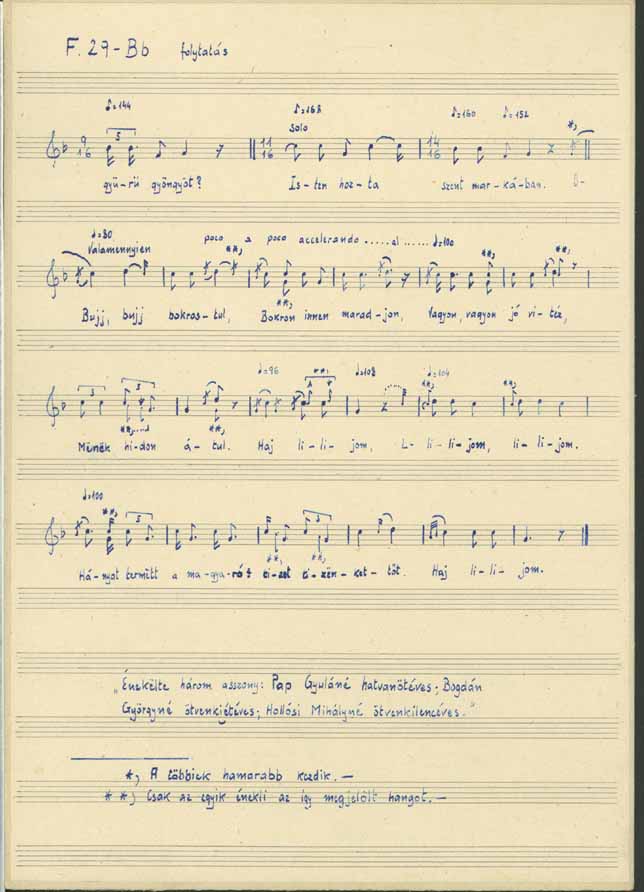 F. 29-Bb folytatás
♪=144 ♪=168 ♪=160 ♪=152
5 solo *)
9 16 11 16 14 16
gyű-rű gyöngyöt? Is-ten hoz-ta szent mar-ká-ban.
♩=80 poco a poco accelerando.....al...... ♩=100
Valamennyien **) **) **)
**)
Bujj, bujj bokros-tul, Bokron innen marad-jon, Vagyon, vagyon jó vi-téz,
♩=96 **) ♩=108 ♩=104
3 3 **) **)
**) **)
Mënëk hi-don á-tul. Haj li-li-jom, L-li-li-jom, li-li-jom.
♩=100
**) 3 3
**) **)
Há-nyat termitt a ma-gya-ró? ti-zet ti-zën-ket-tőt. Haj li-li-jom.
„Énekëlte három asszony: Pap Gyuláné hatvanötéves; Bogdán
Györgyné ötvenkétéves; Hallósi Mihályné ötvenkilencéves."
*) A többiek hamarabb kezdik. —
**) Csak az egyik énekli az így megjelölt hangot. —